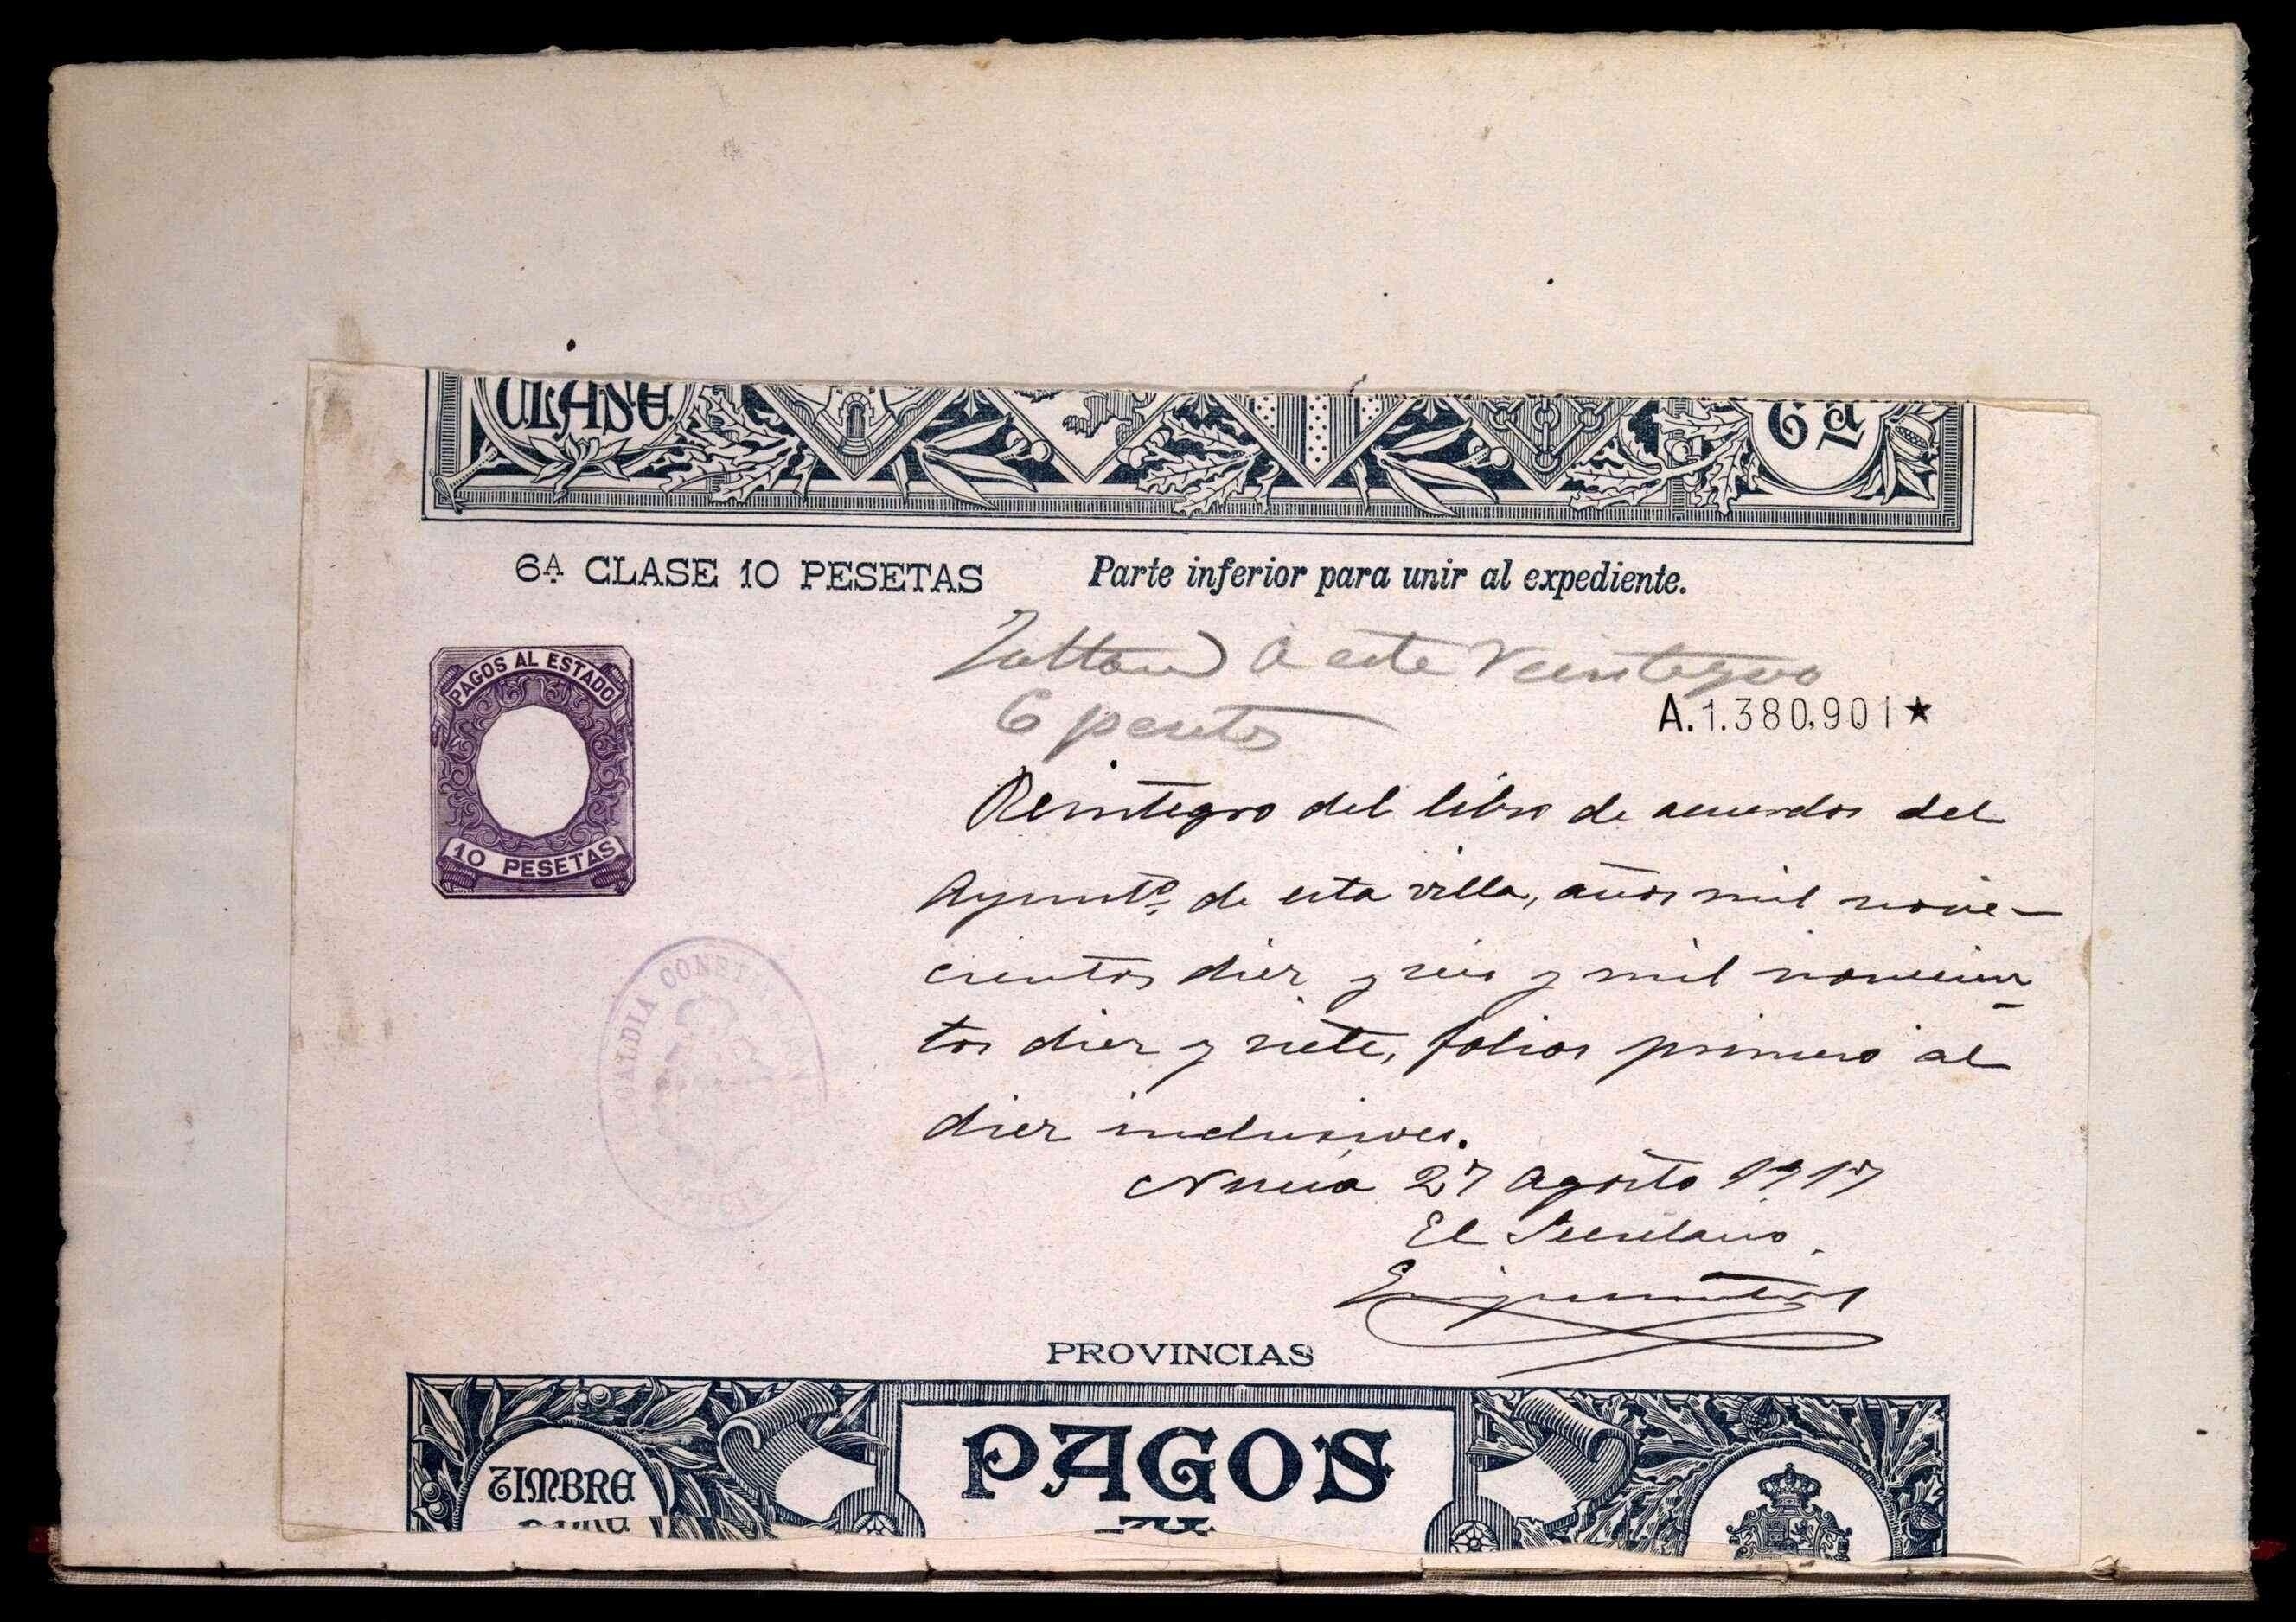 CLASE 6ª
6ª CLASE 10 PESETAS Parte inferior para unir al expediente.
PAGOS AL ESTADO
10 PESETAS
a este reintegro
6 pesetas
A.1.380.901★
Reintegro del libro de acuerdos del
Ayuntº de esta villa, años mil nove-
cientos diez y seis y mil novecien-
tos diez y siete, folios primero al
diez inclusives.
Nucia 27 agosto 1917
El Secretario.
ALCALDIA CONSTI
PROVINCIAS
TIMBRE
PARA
PAGOS
AL